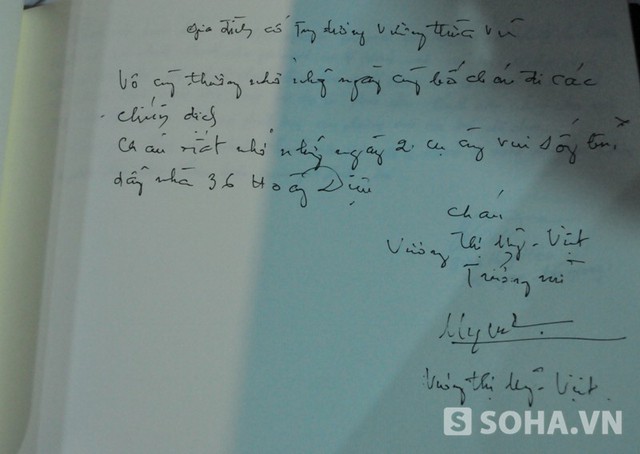 Gia đình cố Trung tướng Vương Thừa Vũ
Vô cùng thương nhớ những ngày cùng bố cháu đi các
chiến dịch
Cháu rất nhớ những ngày 2 cụ cùng vui sống
dãy nhà 36 Hoàng Diệu
Cháu
Vương Thị Mỹ - Việt
Trưởng nữ
Vương Thị Mỹ - Việt
SOHA.VN